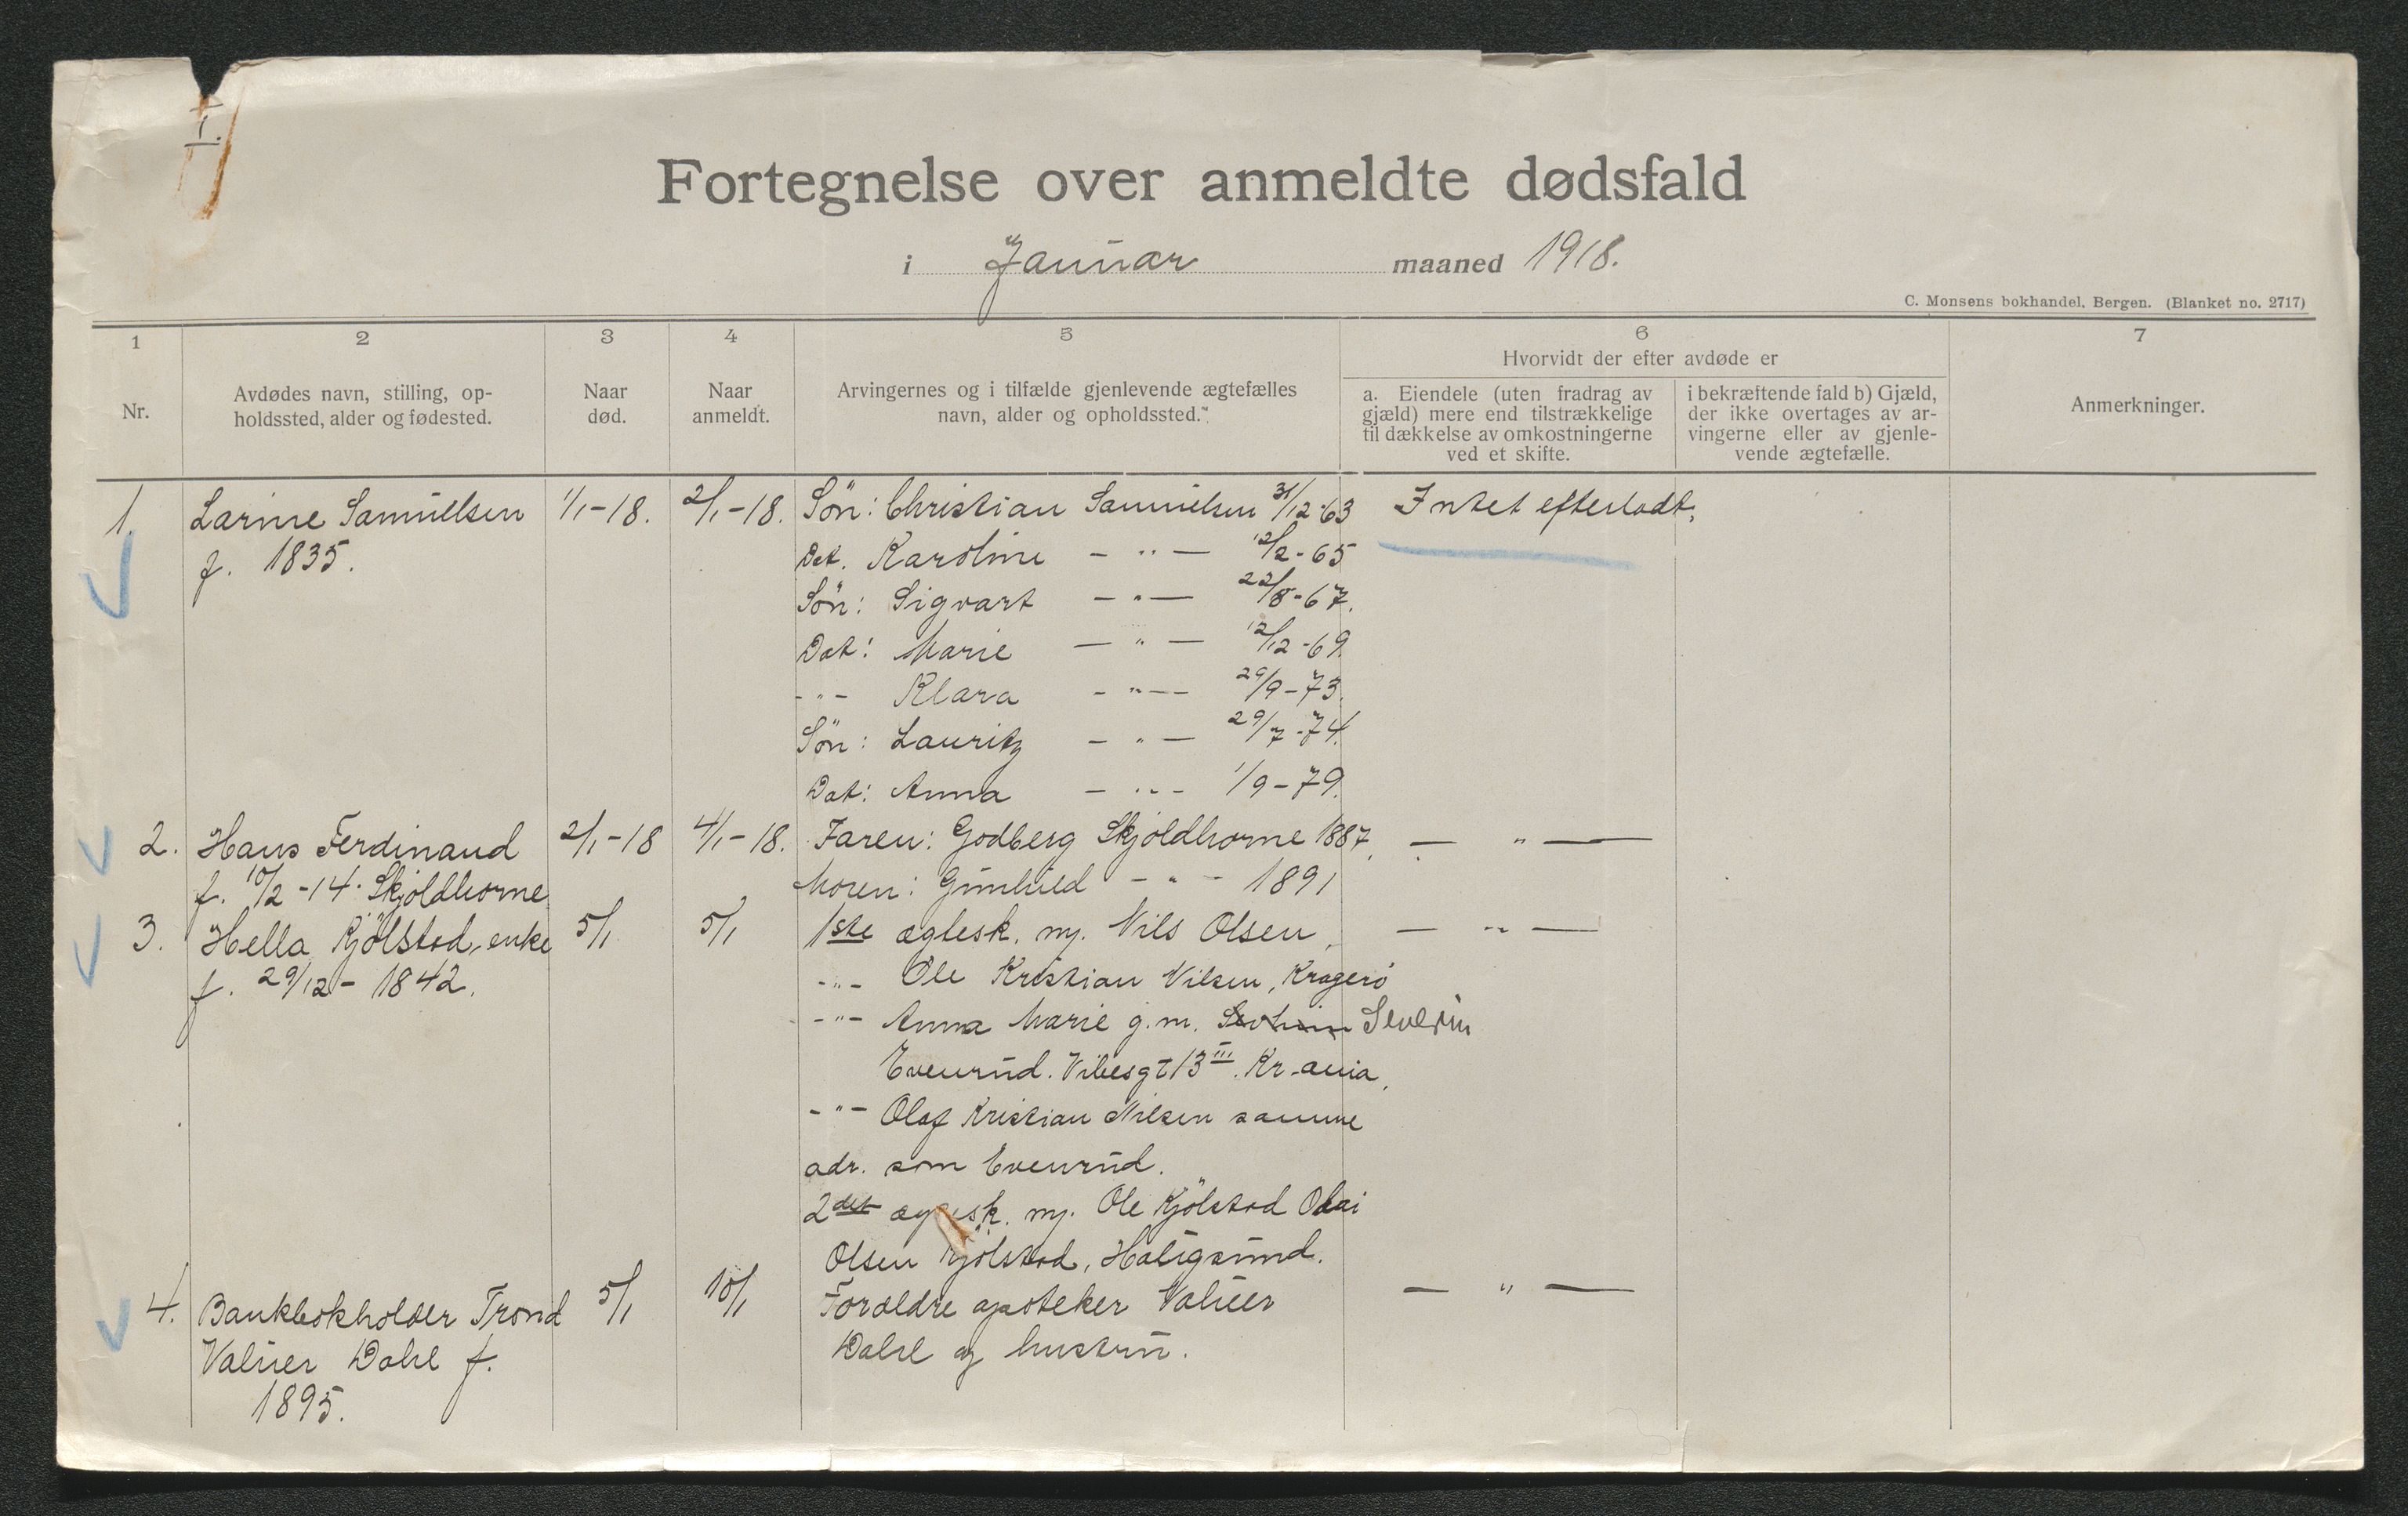 1.
Fortegnelse over anmeldte dødsfald
i Januar maaned 1918.
C. Monsens bokhandel, Bergen. (Blanket no. 2717)
1 2 3 4 5 6 7
Nr.
Avdødes navn, stilling, op-
holdssted, alder og fødested.
Naar
død.
Naar
anmeldt.
Arvingernes og i tilfælde gjenlevende ægtefælles
navn, alder og opholdssted.
Hvorvidt der efter avdøde er
a. Eiendele (uten fradrag av
gjæld) mere end tilstrækkelige
til dækkelse av omkostningerne
ved et skifte.
i bekræftende fald b) Gjæld,
der ikke overtages av ar-
vingerne eller av gjenle-
vende ægtefælle.
Anmerkninger.
1. Larine Samuelsen 1/1-18. 2/1-18. Søn: Christian Samuelsen 31/12-63 Intet efterladt.
f. 1835.
Dat. Karoline - " - 12/2-65
Søn: Sigvart - " - 22/8-67.
Dat: Marie - " - 12/12-69.
- " - Klara - " - 29/9-73.
Søn: Lauritz - " - 29/7-74.
Dat: Anna - " - 1/9-79.
2. Hans Ferdinand 2/1-18 4/1-18. Faren: Godberg Skjoldhorne 1887. - " -
f. 10/2-14. Skjoldhorne Moren: Gunhild - " - 1891
3. Hella Kjölstad, enke 5/1 5/1 1ste ægtesk. m. Nils Olsen, - " -
f. 29/12-1842.
- " - Ole Kristian Nilsen, Kragerö
- " - Anna Marie g.m. Severin
Evenrud. Vibesgt 13 III. Kr.ania,
- " - Olaf Kristian Nilsen samme
adr. som Evenrud.
2det ægtesk. m. Ole Kjölstad Olai
Olsen Kjölstad,
4. Bankbokholder Trond 5/1 10/1 Forældre apoteker Valuer - " -
Valuer Dahl f. Dahl og hustru.
1895.